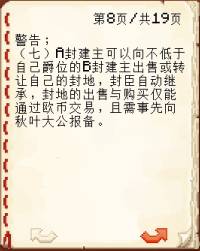 第8页/共19页
警告；
（七）A封建主可以向不低于
自己爵位的B封建主出售或转
让自己的封地，封臣自动继
承，封地的出售与购买仅能
通过欧币交易，且需事先向
秋叶大公报备。